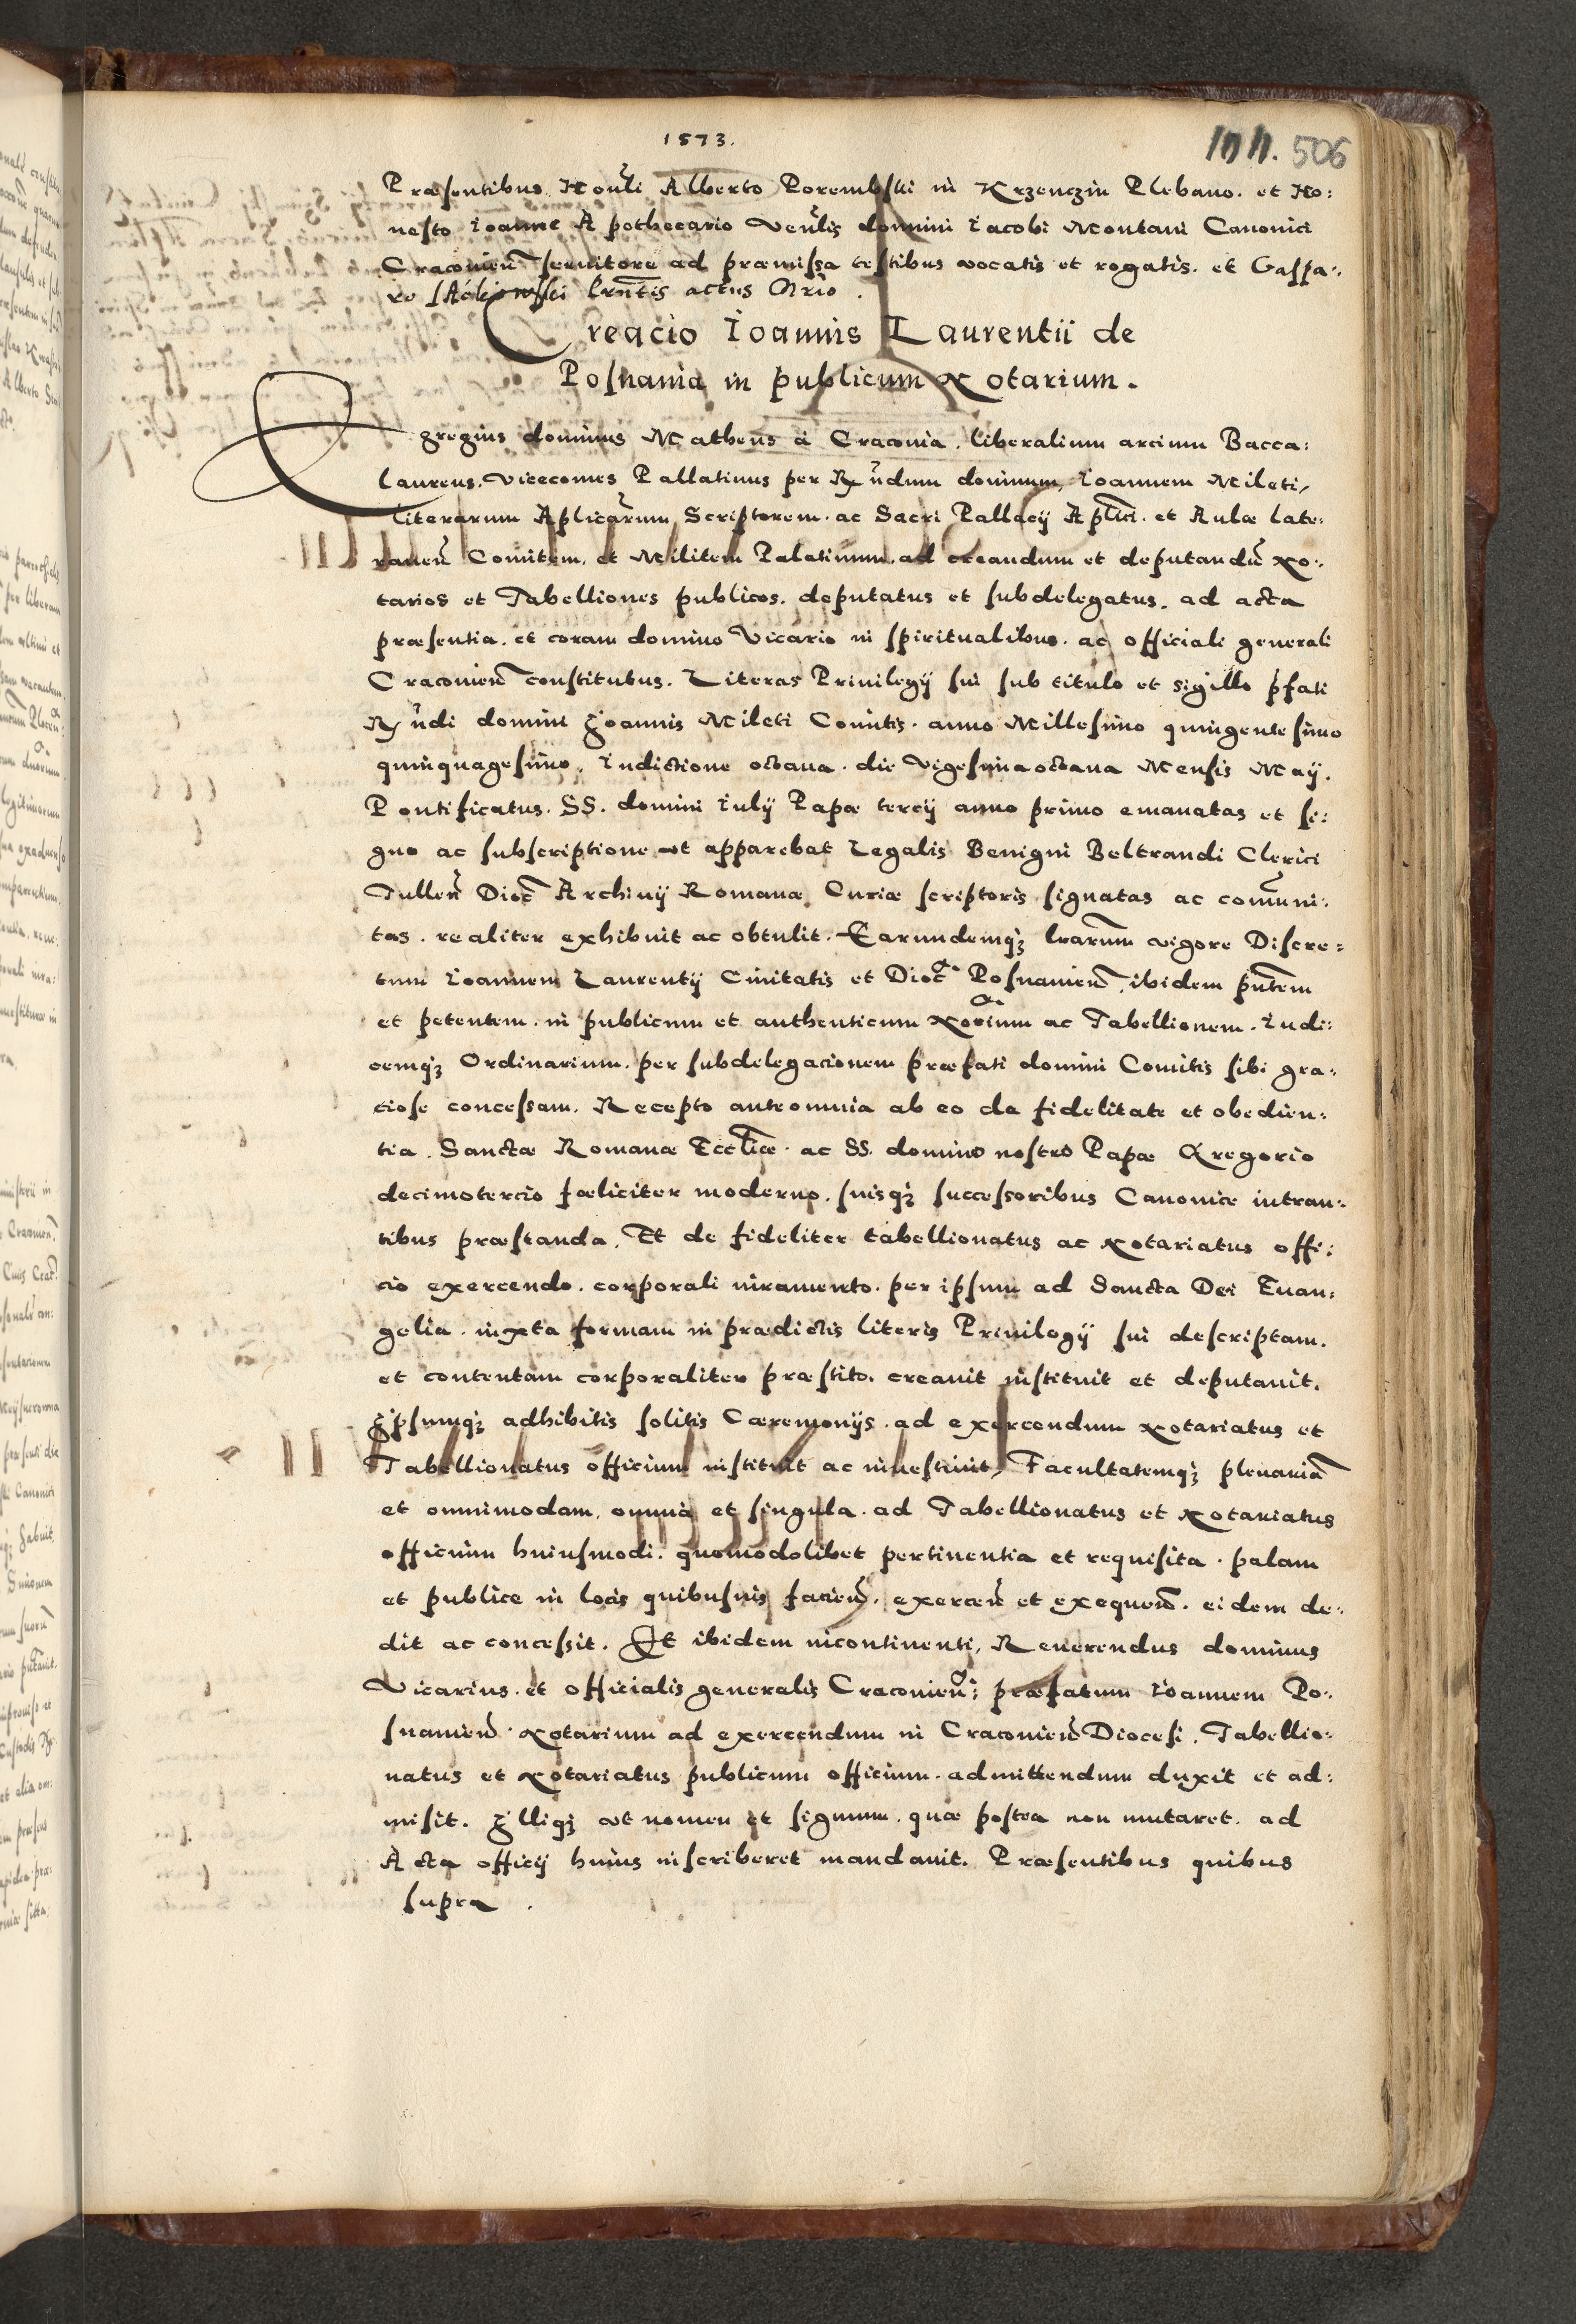 1573.
506
Præsentibus Honrli Alberto Porembski in Krzenczin Plebano. et Ho:
nesto Ioanne Apothecario Venrlis domini Iacobi Montani Canonici
Cracovien seruitore ad præmissa testibus vocatis et rogatis. et Caspa:
ro actus Nrio.
Creacio Ioannis Laurentii de
Posnania in publicum Notarium.
Egregius dominus Matheus à Cracovia, liberalium arcium Bacca:
laureus, Vicecomes Pallatinus per Rndum dominum, Ioannem Mileti,
literarum Aplicarum Scriptorem. ac Sacri Pallacij Aplici. et Aulæ late:
ranen Comitem, et Militem Palatinum. ad creandum et deputandũ No:
tarios et Tabelliones publicos. deputatus et subdelegatus. ad acta
præsentia. et coram domino Vicario in spiritualibus. ac officiali generali
Cracovien constitutus. Literas Priuilegij sui sub titulo et sigillo pfati
Rndi domini Joannis Mileti Comitis. anno Millesimo quingentesimo
quinquagesimo. Indictione octaua. die vigesimaoctaua Mensis Maij.
Pontificatus. SS. domini Iulij Papæ tercij anno primo emanatas et si:
gno ac subscriptione vt apparebat Legalis Benigni Beltrandi Clerici
Tullen Dioc Archiuij Romanæ Curiæ scriptoris signatas ac comuni:
tas. realiter exhibuit ac obtulit. Earundemqз lrarum vigore Discre=
tum Ioannem Laurentij Ciuitatis et Dioc Posnanien, ibidem pntem
et petentem. in publicum et authenticum Norium ac Tabellionem. Iudi:
cemqз Ordinarium. per subdelegacionem præfati domini Comitis sibi gra:
ciose concessam. Recepto anteomnia ab eo de fidelitate et obedien:
tia Sanctæ Romanæ Eccliæ. ac SS. domino nostro Papæ Gregorio
decimotercio fæliciter moderno. suisqз successoribus Canonice intran:
tibus præstanda. Et de fideliter tabellionatus ac Notariatus offi:
cio exercendo. corporali iuramento. per ipsum ad Sancta Dei Euan:
gelia. iuxta formam in prædictis literis Priuilegij sui descriptam.
et contentam corporaliter præstito. creauit instituit et deputauit.
Jpsumqз adhibitis solitis Cæremonijs. ad exercendum Notariatus et
Tabellionatus officium instituit ac inuestiuit, Facultatemqз plenariã
et omnimodam, omnia et singula. ad Tabellionatus et Notariatus
officium huiusmodi. quomodolibet pertinentia et requisita. palam
et publice in locis quibusuis facien. exercen et exequen. eidem de:
dit ac concessit. Et ibidem incontinenti, Reuerendus dominus
Vicarius. et officialis generalis Cracovien: præfatum Ioannem Po:
snanien. Notarium ad exercendum in Cracovien Diocesi. Tabellio:
natus et Notariatus publicum officium. admittendum duxit et ad:
misit. Jlliqз vt nomen et signum. quæ postea non mutaret. ad
Acta officij huius inscriberet mandauit. Præsentibus quibus
supra.